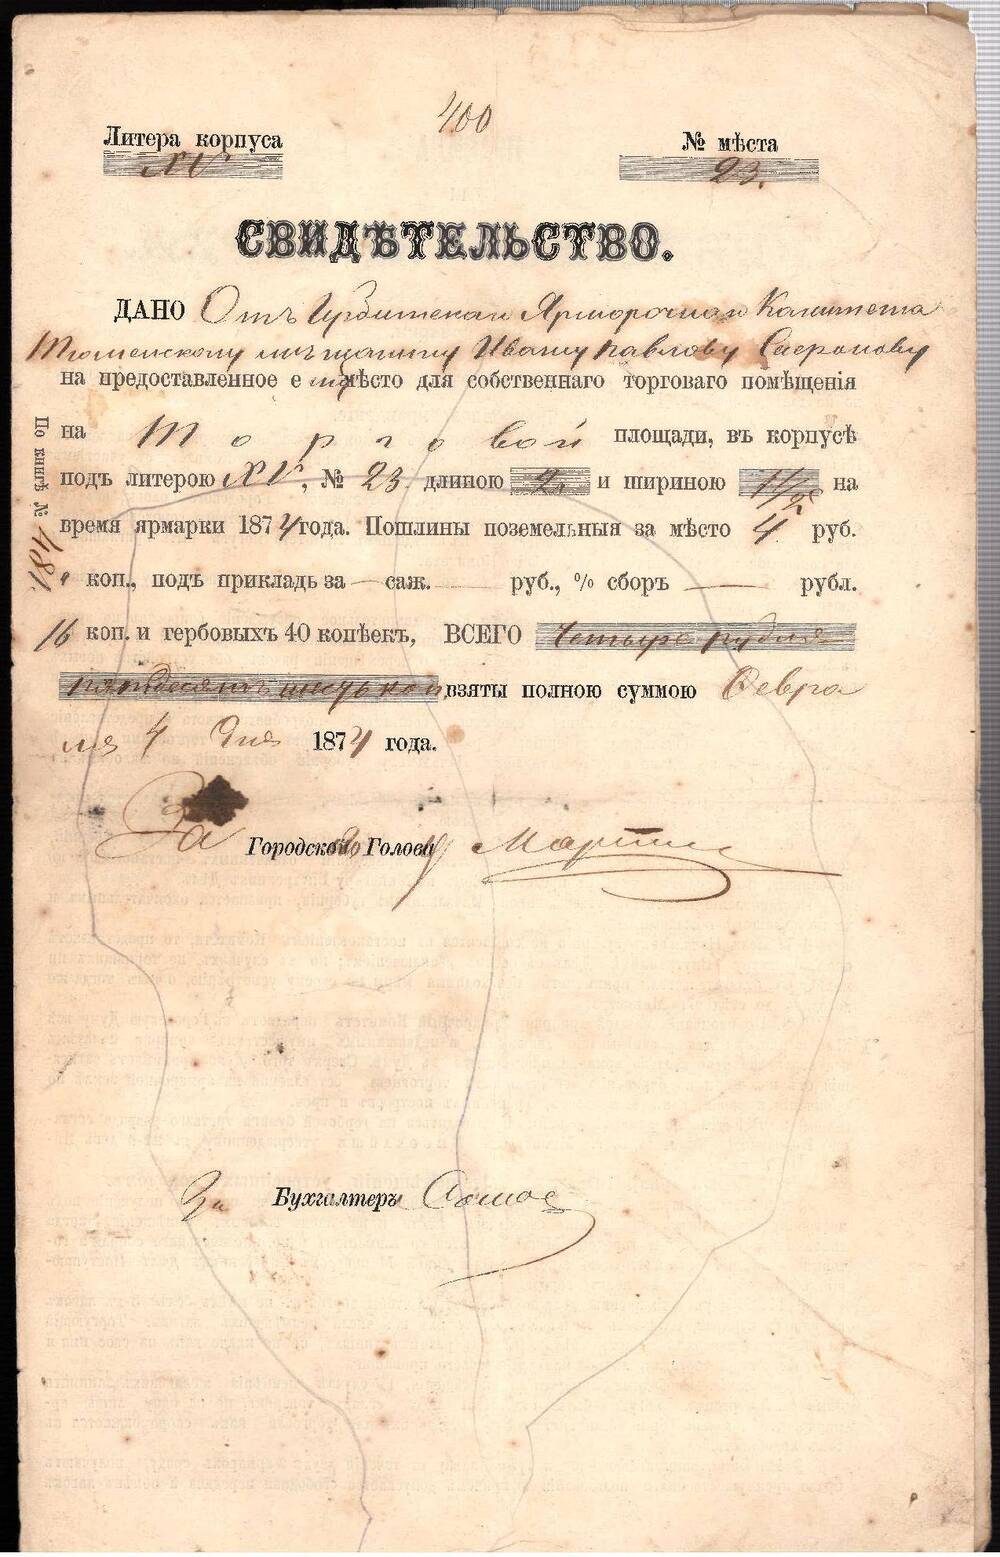 400
Литера корпуса № мѣста
XV 23.
СВИДѢТЕЛЬСТВО.
ДАНО Отъ Ирбитскаго Ярморочнаго Комитета
Тюменскому мѣщанину Ивану Павлову Сафронову
на предоставленное ему мѣсто для собственнаго торговаго помѣщенія
на Торговой площади, въ корпусѣ
подъ литерою XV, № 23. длиною 2 и шириною 1 1/2 на
время ярмарки 1874 года. Пошлины поземельныя за мѣсто 4 руб.
„ коп., подъ прикладь за — саж. — руб., % сборъ — рубл.
16 коп. и гербовыхъ 40 копѣекъ, ВСЕГО Четыре рубля
пятдесятъ шесть коп. взяты полною суммою Февра
ля 4 дня 1874 года.
По книгѣ № 481.
За Городского Голову
За Бухгалтеръ